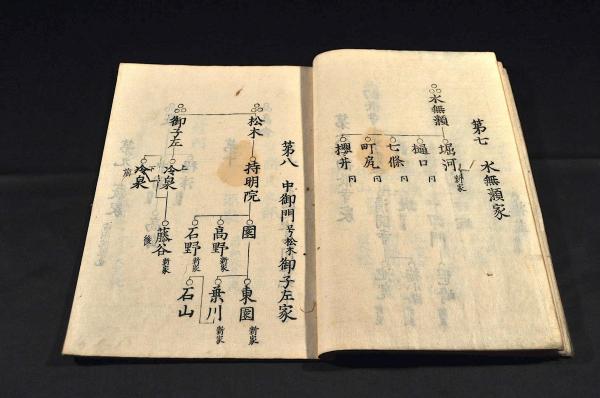 第七 水無瀬家
水無瀬
堀河 新家
樋口 同
七條 同
町尻 同
櫻井 同
第八 中御門 号松木 御子左家
松木
持明院
園
東園 新家
高野 新家
葉川 新家
石野 新家
石山
御子左
上冷泉
藤谷 新家 後
下冷泉 前